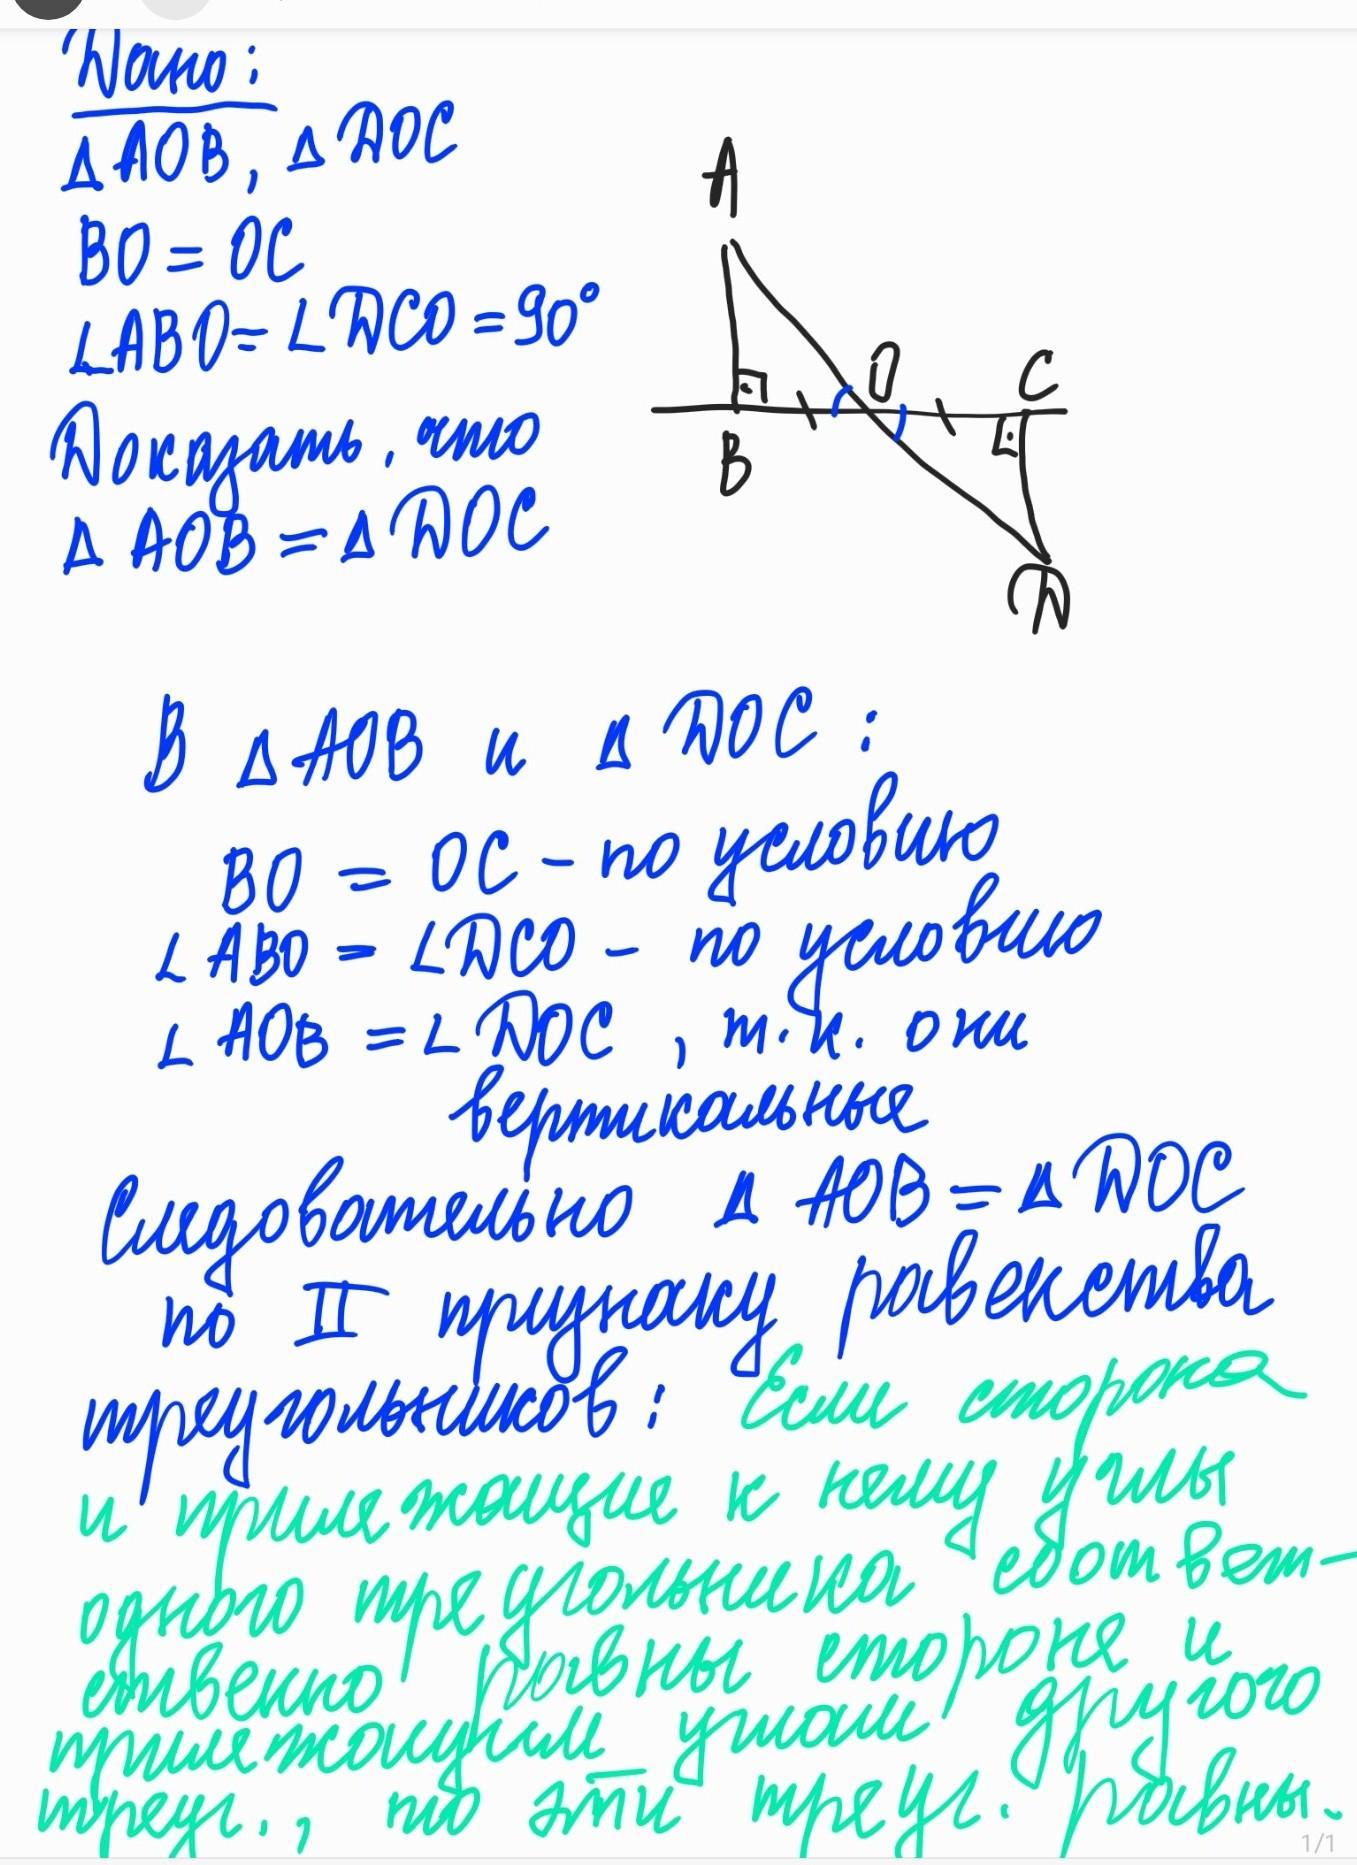 Дано:
Δ AOB, Δ DOC
BO = OC
∠ABO = ∠DCO = 90°
Доказать, что
Δ AOB = Δ DOC
A
O
C
B
D
В Δ AOB и Δ DOC :
BO = OC - по условию
∠ ABO = ∠DCO - по условию
∠ AOB = ∠ DOC , т.к. они
вертикальные
Следовательно Δ AOB = Δ DOC
по II признаку равенства
треугольников : Если сторона
и прилежащие к нему углы
одного треугольника соответ-
ственно равны стороне и
прилежащим углам другого
треуг., то эти треуг. равны.
1/1